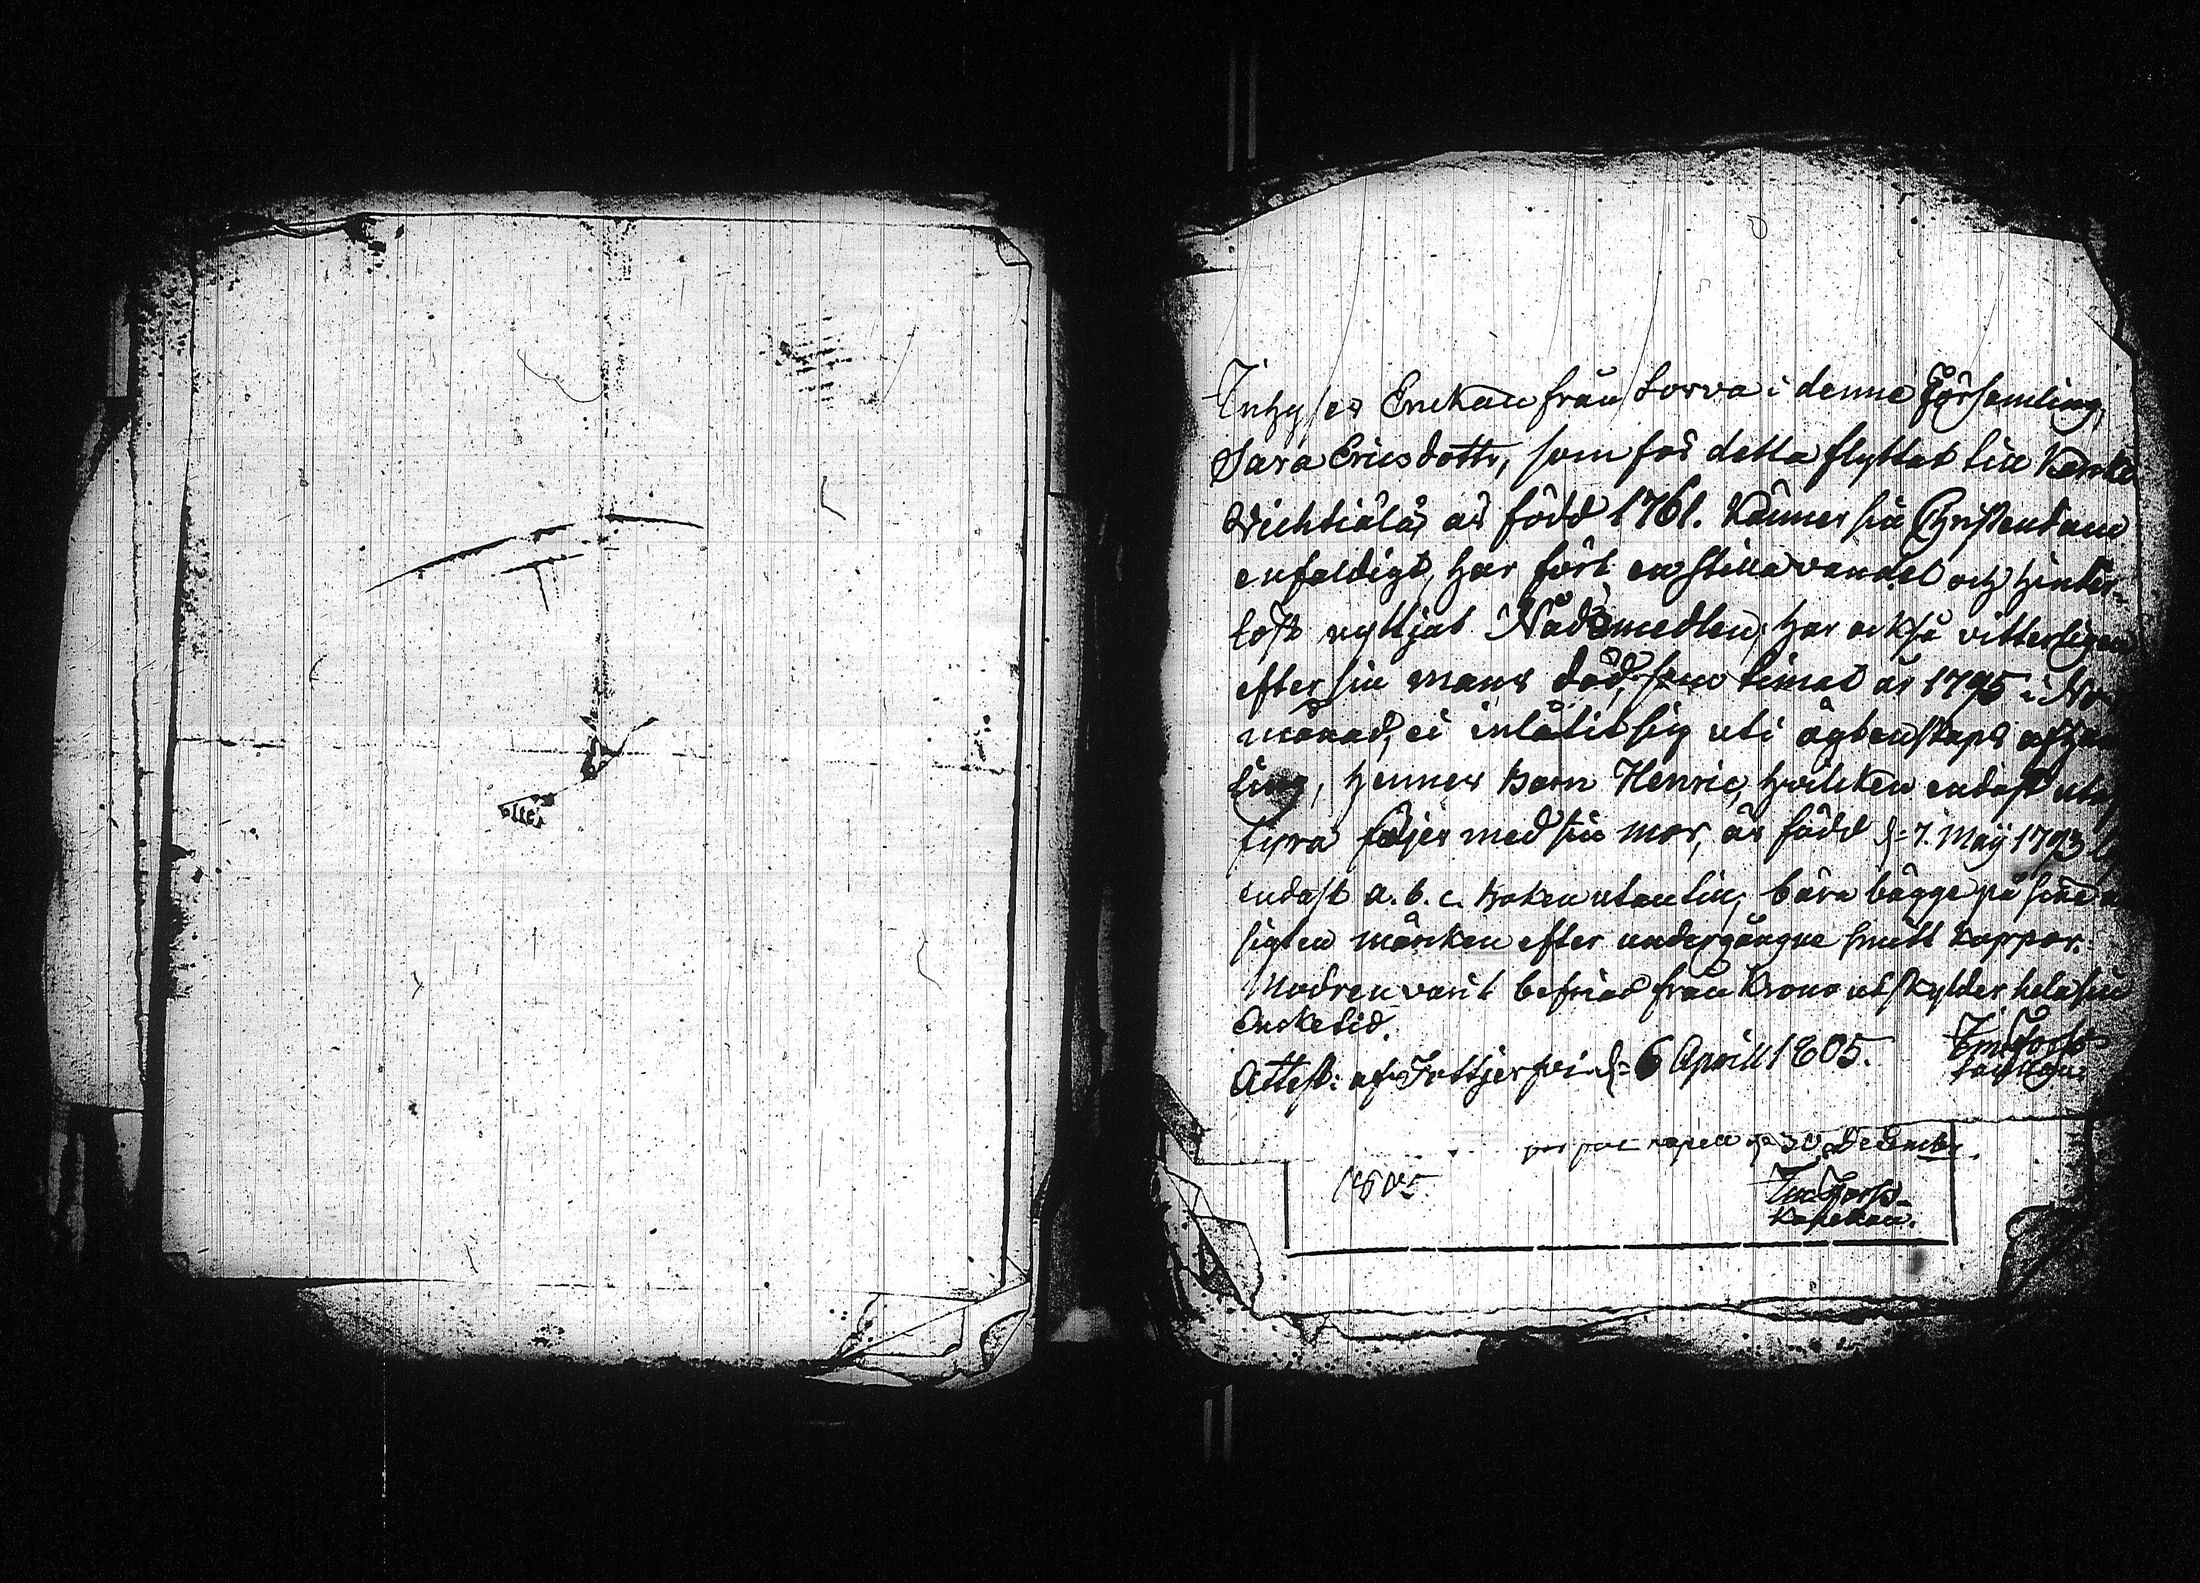 Inhyses Enckan från Sorva i denne Församling,
Sara Ericsdottr, som för detta flyttat till
Wichtiälä, är född 1761. Känner sin Christendom
enfaldigt, har fört en stilla vandel och hinder-
löst nyttjat Nådemedlen; har också vitterligen
efter sin mans död, som timat år 1795 i
månad, ei inlåtit sig uti ägtenskaps afhan
ling, hennes barn Henric, hvilken endast
fyra följer med sin mor, är född d. 7. Maij 1793
endast a. b. c. boken utantill, bära bägge på sine
sigten märken efter undergångne smitt koppor.
Modren varit befriad från Krono utskylder hela sin
Encketid.
Attest: af Jottjerfvi d. 6 Aprill 1805.
30 December
1805